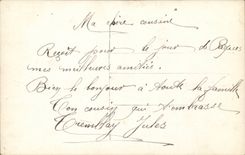 Ma chère cousine
Reçoit pour le jour de Pâques
mes meilleures amitiés.
Bien le bonjour à toute la famille
Ton cousin qui t'embrasse
Tremblay Jules